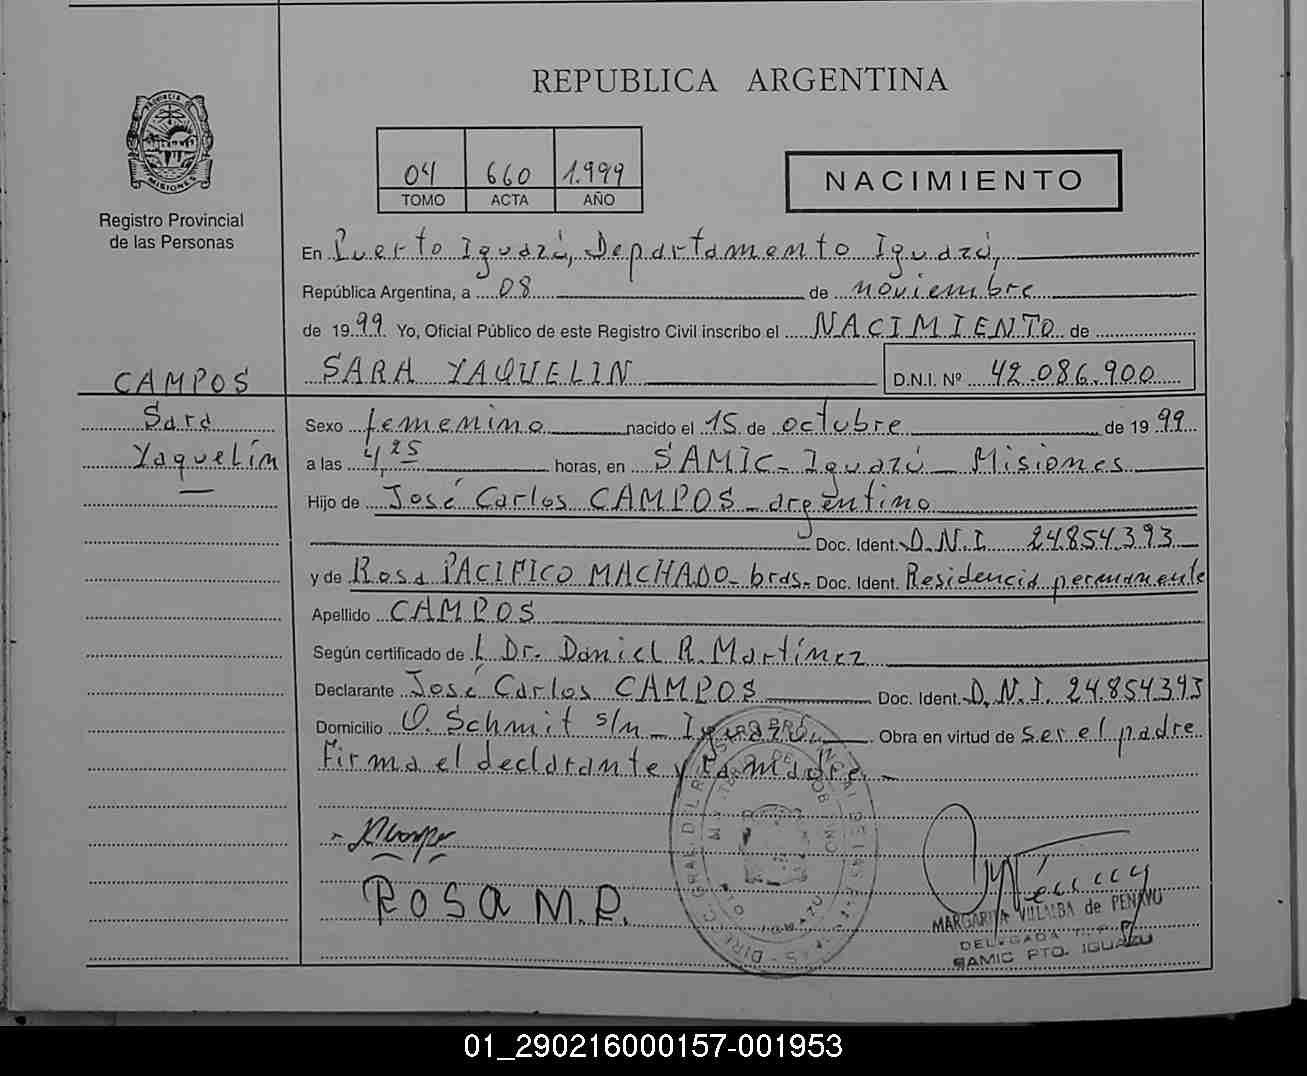 REPUBLICA ARGENTINA
PROVINCIA DE
MISIONES
Registro Provincial
de las Personas
04 660 1.999
TOMO ACTA AÑO
NACIMIENTO
En Puerto Iguazú, Departamento Iguazú,
República Argentina, a 08 de noviembre
de 1999 Yo, Oficial Público de este Registro Civil inscribo el NACIMIENTO de
SARA YAQUELIN D.N.I. Nº 42.086.900
CAMPOS
Sara
Yaquelín
Sexo femenino nacido el 15 de octubre de 1999
a las 4,25 horas, en SAMIC - Iguazú - Misiones
Hijo de José Carlos CAMPOS - argentino
Doc. Ident. D.N.I. 24.854.393
y de Rosa PACIFICO MACHADO - bras. Doc. Ident. Residencia permanente
Apellido CAMPOS
Según certificado de L Dr. Daniel R. Martínez
Declarante José Carlos CAMPOS Doc. Ident. D.N.I. 24.854.393
Domicilio O. Schmit s/n - Iguazú. Obra en virtud de ser el padre
Firma el declarante y la madre. -
ROSA M.P.
MARGARITA VILLALBA de PENAYO
DELEGADA
SAMIC PTO. IGUAZU
01_290216000157-001953